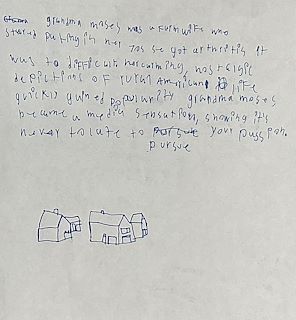 grandma moses was a farm wife who
started painting in her 70s she got arthritis it
was to difficult her charming, nostalgic
depictions of rural American life
quickly gained popularity grandma moses
became a media sensation, showing it's
never to late to your passion.
pursue